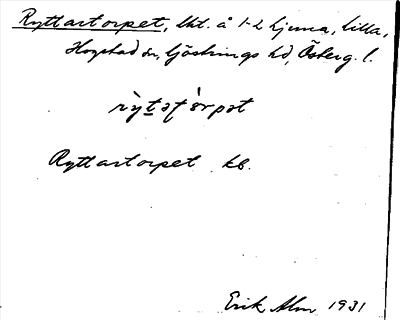 Ryttartorpet, lht. å 1-2 Hjerna, Lilla,
Hogstad sn, Göstrings hd, Österg. l.
Ryttartorpet kb.
Erik Alm 1931